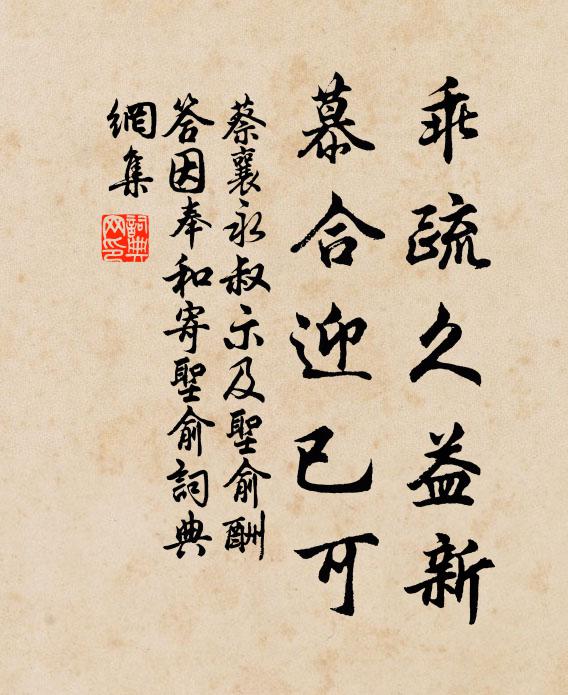 乖疏久益新
慕合迎已可
蔡襄永叔示及聖俞酬
答因奉和寄聖俞詞典
網集
詞典
网印